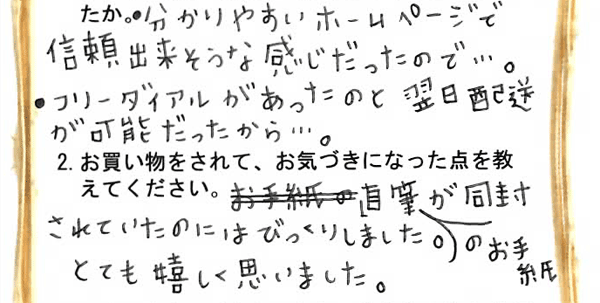 たか。•分かりやすいホームページで
信頼出来そうな感じだったので…。
•フリーダイアルがあったのと翌日配送
が可能だったから…。
2. お買い物をされて、お気づきになった点を教
えてください。お手紙の直筆が同封
されていたのにはびっくりしました。のお手
紙
とても嬉しく思いました。